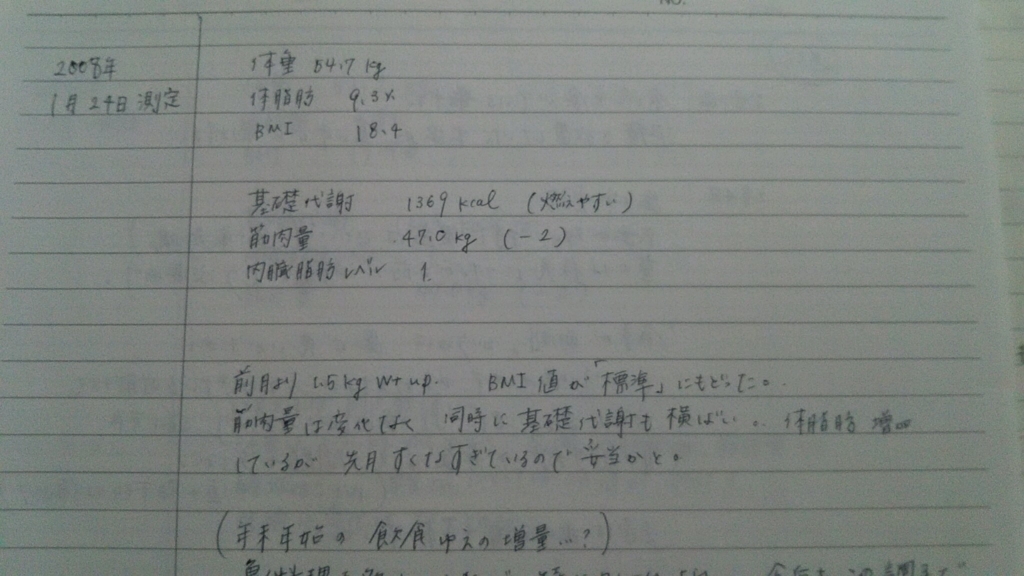 No.
2008年
1月24日 測定
体重 54.7 kg
体脂肪 9.3%
BMI 18.4
基礎代謝 1369 kcal (燃えやすい)
筋肉量 47.0 kg (-2)
内臓脂肪レベル 1.
前月より 1.5kg Wt up. BMI 値が「標準」にもどった。
筋肉量は変化なく 同時に基礎代謝も横ばい。体脂肪 増
しているが 先月 すくなすぎているので 妥当かと。
(年末年始の 飲食ゆえの増量…?)